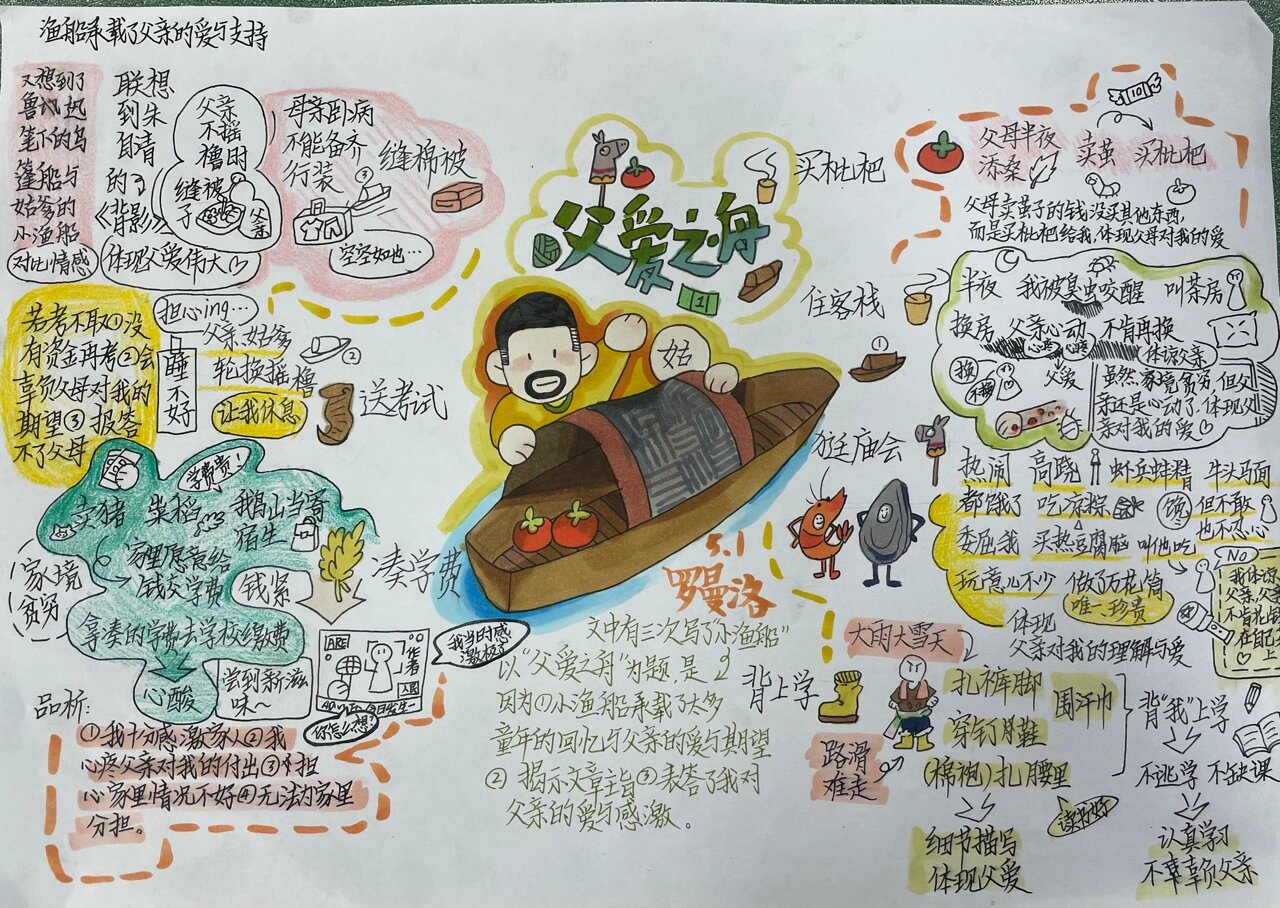 渔船承载了父亲的爱与支持
又想到了
鲁迅
笔下的乌
篷船与
姑爹的
小渔船
对比情感
联想
到朱
自清
的
《背影》
体现父爱伟大
父亲
不摇
橹时
缝被
子
爹
母亲卧病
不能备齐
行装
③
缝棉被
空空如也…
父爱之舟
买枇杷
父母半夜
添桑
卖茧
买枇杷
父母卖蚕子的钱没买其他东西,
而是买枇杷给我,体现父母对我的爱
住客栈
①
半夜
我被臭虫咬醒
叫茶房
换房
父亲心动
不肯再换
心疼
心疼
体谅父亲
换
不换
父爱
虽然家境贫穷,但父
亲还是心动了,体现父
亲对我的爱
若考不取①没
有资金再考②会
辜负父母对我的
期望③报答
不了父母
担心ing…
睡不好
父亲姑爹
轮换摇橹
②
让我休息
送考试
姑
逛庙会
热闹
高跷
虾兵蚌精
牛头马面
都饿了
吃凉粽
馋
但不敢
也不忍心
委屈我
买热豆腐脑
叫他吃
玩意儿不少
做了万花筒
唯一珍贵
NO
我体谅
父亲,父亲
不肯花钱
在自己
上
体现
父亲对我的理解与爱
卖猪
粜稻
学费贵!
我鹅山当寄
宿生
家里愿意给
钱交学费
钱紧
家境
贫穷
凑学费
拿凑的学费去学校缴费
心酸
尝到新滋
味~
作者
今日发生
你怎么想?
我当时感
激极了
品析:
①我十分感激家人②我
心疼父亲对我的付出③
心家里情况不好④无法为家里
分担。
5.1
罗曼洛
文中有三次写了“小渔船”
以“父爱之舟”为题,是
因为①小渔船承载了太多
童年的回忆与父亲的爱与期望
②揭示文章主旨③表答了我对
父亲的爱与感激。
背上学
大雨大雪天
路滑
难走
扎裤脚
围汗巾
穿钉鞋
(棉袍)扎腰里
细节描写
体现父爱
读书好
背“我”上学
不逃学
不缺课
认真学习
不辜负父亲